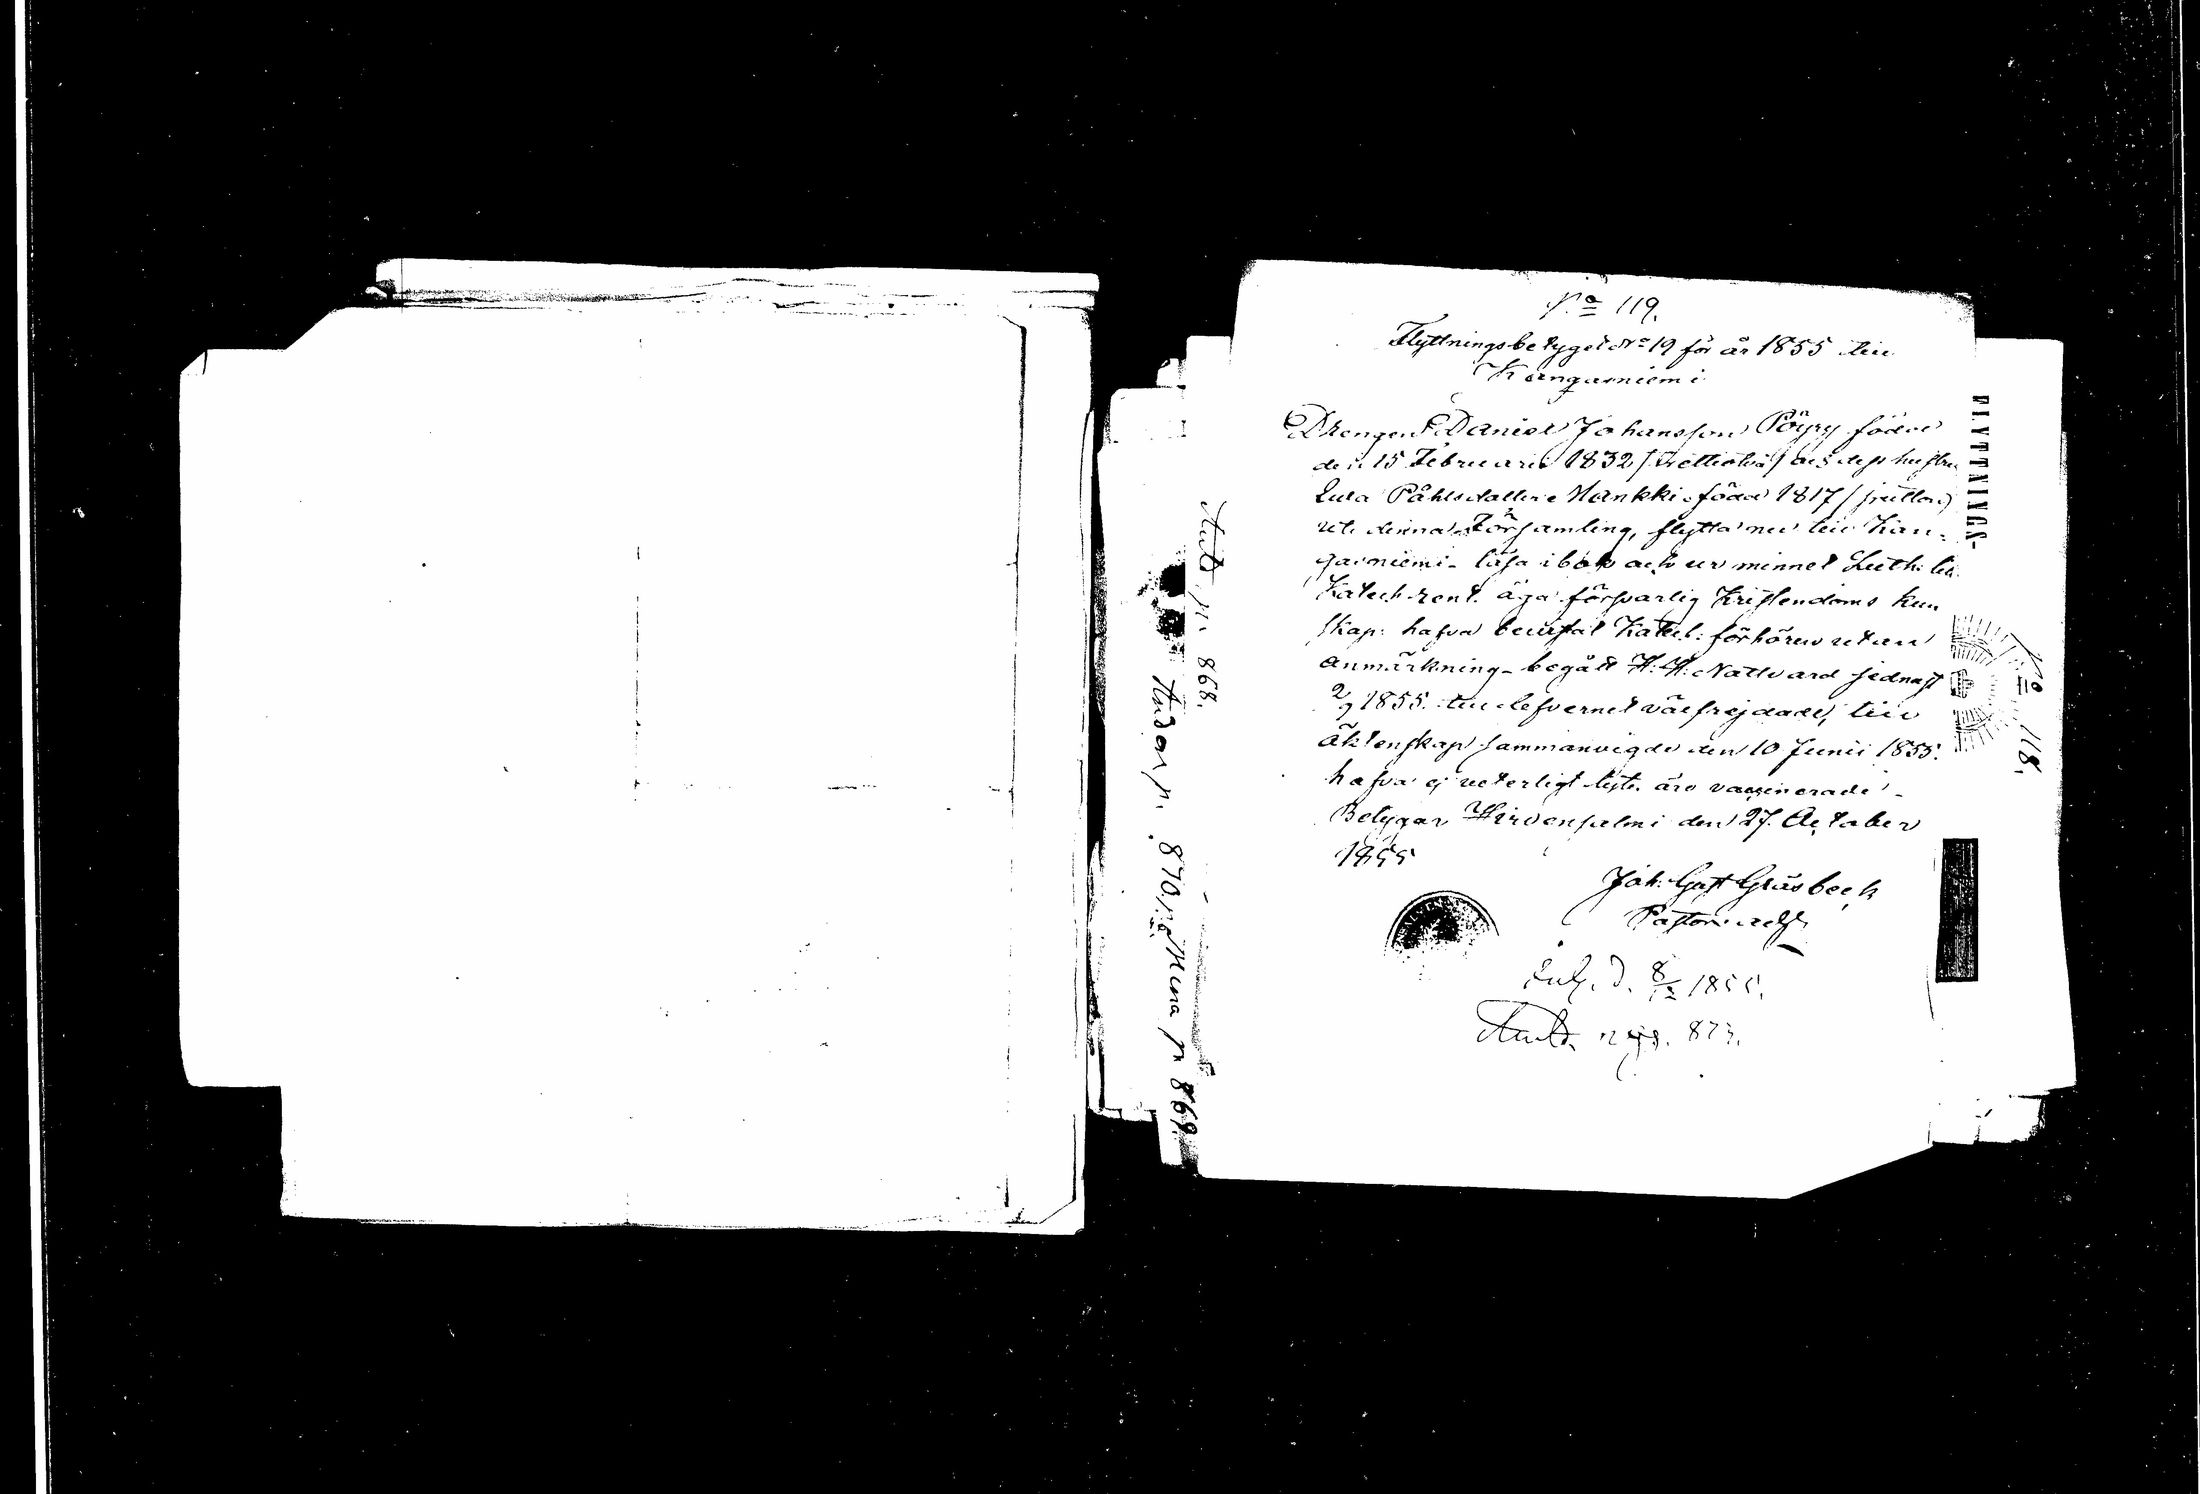 No 119.
Flyttningsbetyget No 19 för år 1855 till
Kangasniemi
Drengen Daniel Johansson Pöyry född
den 15 Februarii 1832 / trettiotvå / och dess hustru
Påhlsdotter Mankki född 1817 / sjutton /
uti denna Församling, flytta nu till Kan-
gasniemi - läsa i bok och ur minnet Luth: lilla
Katech äga försvarlig Kristendoms kun
skap: hafva bevistat Katech: förhören utan
anmärkning - begått H: H: Nattvard sednast
2/9 1855. till lefvernet välfrejdade, till
äktenskap sammanvigde den 10 Junii 1855.
hafva ej veterligt lyte. äro vaccinerade -
Betygar Hirvensalmi den 27. October
1855
Joh: Gust Gråsbeck
Pastor
d. 8/12 1855.
873.
FLYTTNINGS-
No 118.
p. 868.
p. 870. p 869.